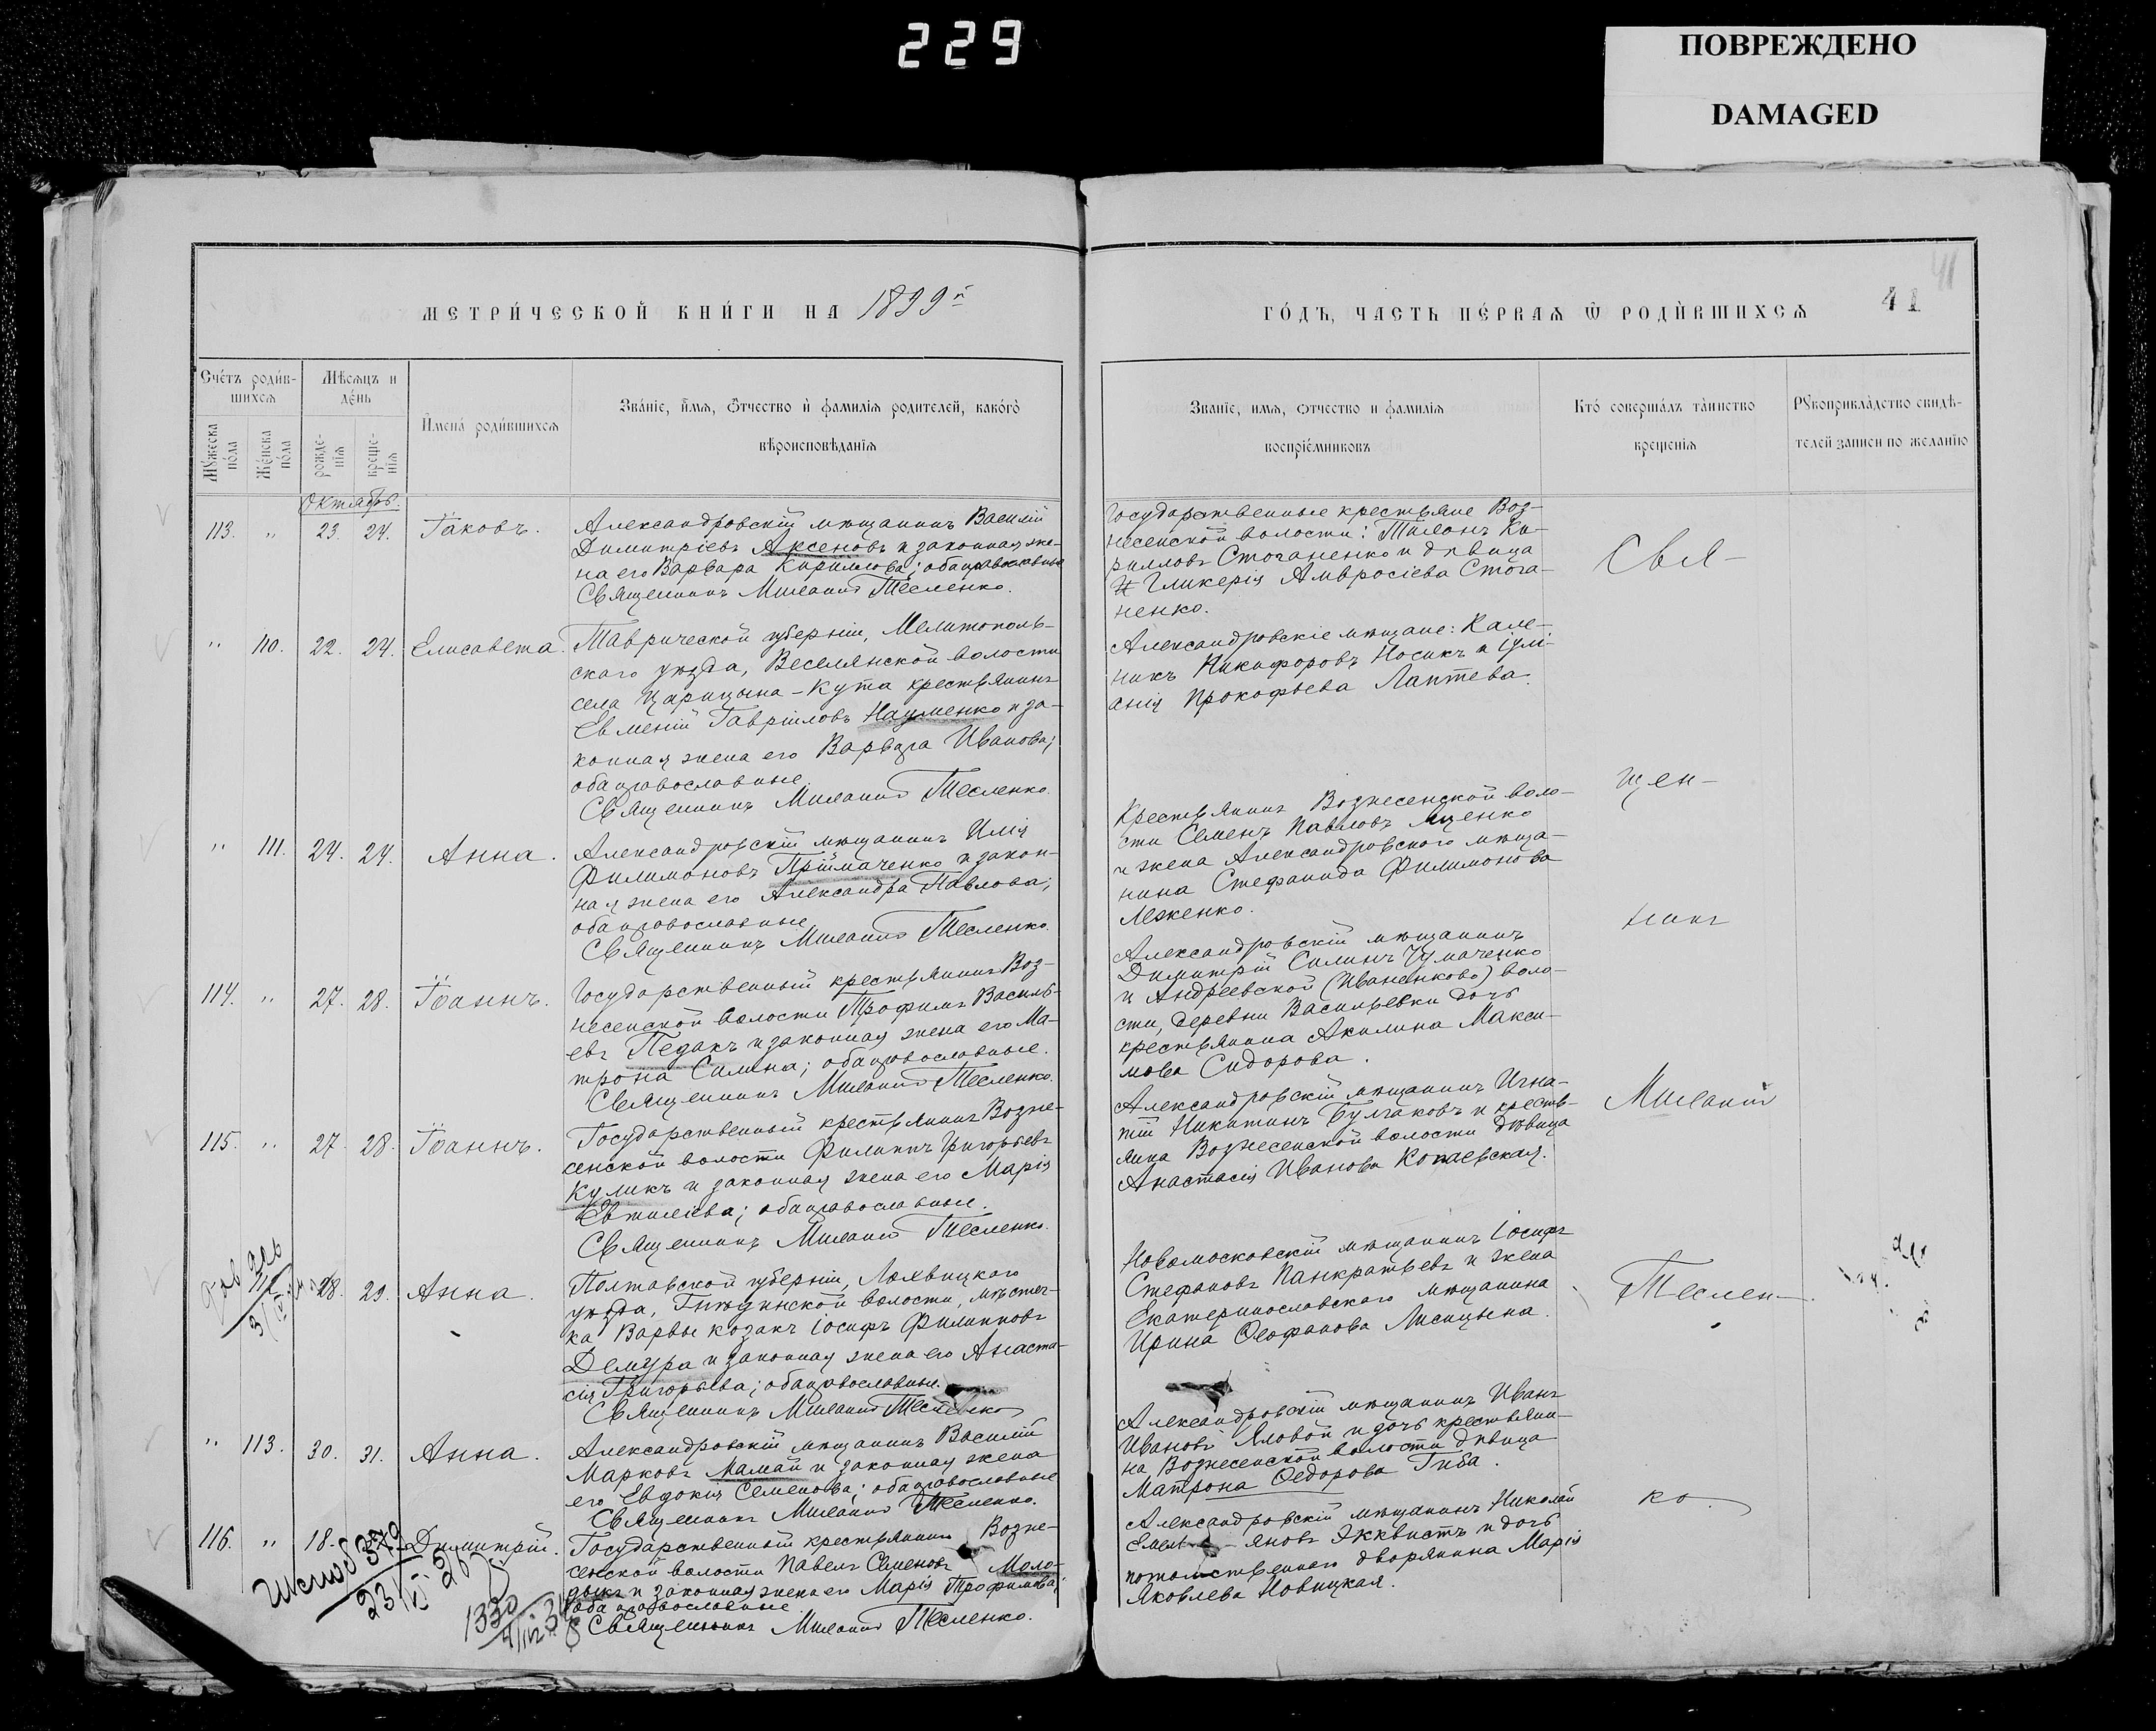 229
ПОВРЕЖДЕНО
DAMAGED
МЕТРИ́ЧЕСКОЙ КНИ́ГИ НА 1899 й
ГО́ДЪ, ЧАСТЬ ПЕ́РВАЯ Ѿ РОДИ́ВШИХСЯ
41
Сче́тъ роди́в-
шихся
Мѣсяцъ и
де́нь
Му́жеска
по́ла
Же́нска
по́ла
рожде-
нія
креще-
нія
И҆мена́ роди́вшихся
Зва́ніе, и҆́мя, о҆́тчество и҆ фамилія родителей, како́гѡ
вѣроисповѣданія
Званіе, имя, отчество и фамилія
воспріе́мниковъ
Кто́ соверша́лъ та́инство
крещенія
Рꙋкоприкла́дство свидѣ-
телей записи по желанію
Октябрь
113. " 23. 24. Іаковъ.
Александровскій мѣщанинъ Василій
Димитріевъ Аксеновъ и законная же-
на его Варвара Кириллова; оба православные
Священникъ Миланій Тесленко.
Государственные крестьяне Воз-
несенской волости: Ки-
рилловъ Стоганенко и дѣвица
Гликерія Амвросіева Стога-
ненко.
" 110. 22. 24. Елисавета.
Таврической губерніи, Мелитополь-
скаго уѣзда, Веселянской волости
села Царицына-Кута крестьянинъ
Евменій Гавріиловъ Науменко и за-
конная жена его Варвара Иванова;
оба православные.
Священникъ Миланій Тесленко.
Александровскіе мѣщане: Кале-
никъ Никифоровъ Носикъ и Іулі-
анія Прокофьева Лаптева.
" 111. 24. 24. Анна.
Александровскій мѣщанинъ Илія
Филимоновъ Пріймаченко и закон-
ная жена его Александра Павлова;
оба православные
Священникъ Миланій Тесленко.
Крестьянинъ Вознесенской воло-
сти Семенъ Павловъ Яценко
и жена Александровского мѣща-
нина Стефанида Филимонова
Леженко.
114. " 27. 28. Іоаннъ.
Государственный крестьянинъ Воз-
несенской волости Трофимъ Василь-
евъ Педакъ и законная жена его Ма-
трона Силина; оба православные.
Священникъ Миланій Тесленко.
Александровскій мѣщанинъ
Димитрій Силинъ Чумаченко
и Андреевской (Иваненково) воло-
сти, деревни Васильевки дочь
крестьянина Акилина Макси-
мова Сидорова.
115. " 27. 28. Іоаннъ.
Государственный крестьянинъ Возне-
сенской волости Филиппъ Григорьевъ
Куликъ и законная жена его Марія
Евтихіева; оба православные.
Священникъ Миланій Тесленко.
Александровскій мѣщанинъ Игна-
тій Никитинъ Булгаковъ и кресть-
янка Вознесенской волости дѣвица
Анастасія Иванова Копаевская.
28. 29. Анна.
Полтавской губерніи, Лохвицкаго
уѣзда, Гнѣдинской волости, мѣстеч-
ка Варвы козакъ Іосифъ Филипповъ
Демура и законная жена его Анаста-
сія Григорьева; оба православные.
Священникъ Миланій Тесленко
Новомосковскій мѣщанинъ Іосифъ
Стефановъ Панкратьевъ и жена
Екатеринославского мѣщанина
Ирина Ѳеофанова Лисицына.
" 113. 30. 31. Анна.
Александровскій мѣщанинъ Василій
Марковъ Мамай и законная жена
его Евдокія Семенова; оба православные
Священникъ Миланій Тесленко.
Александровскій мѣщанинъ Иванъ
Ивановъ Яловой и дочь крестьяни-
на Вознесенской волости дѣвица
Матрона Ѳедорова Гиба.
116. " 18. Димитрій.
Государственный крестьянинъ Возне-
сенской волости Павелъ Семеновъ Моло-
дыкъ и законная жена его Марія Трофимова;
оба православные
Священникъ Миланій Тесленко.
Александровскій мѣщанинъ Николай
Емел яновъ Экквистъ и дочь
потомственнаго дворянина Марія
Яковлева Новицкая.
Свя-
щен-
никъ
Миланій
Теслен-
ко.
379
1330